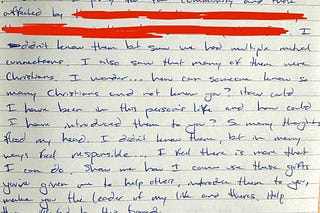 for our community and those
affected by
I
didn't know them but saw we had multiple mutual
connections. I also saw that many of them were
Christians. I wonder... how can someone know so
many Christians and not know you? How could
I have been in this person's life and how could
I have introduced them to you? So many thoughts
flood my head. I didn't know them, but in many
ways feel responsible... I feel there is more that
I can do. Show me how I can use these gifts
you've given me to help others, introduce them to you,
make you the leader of my life and theirs. Help